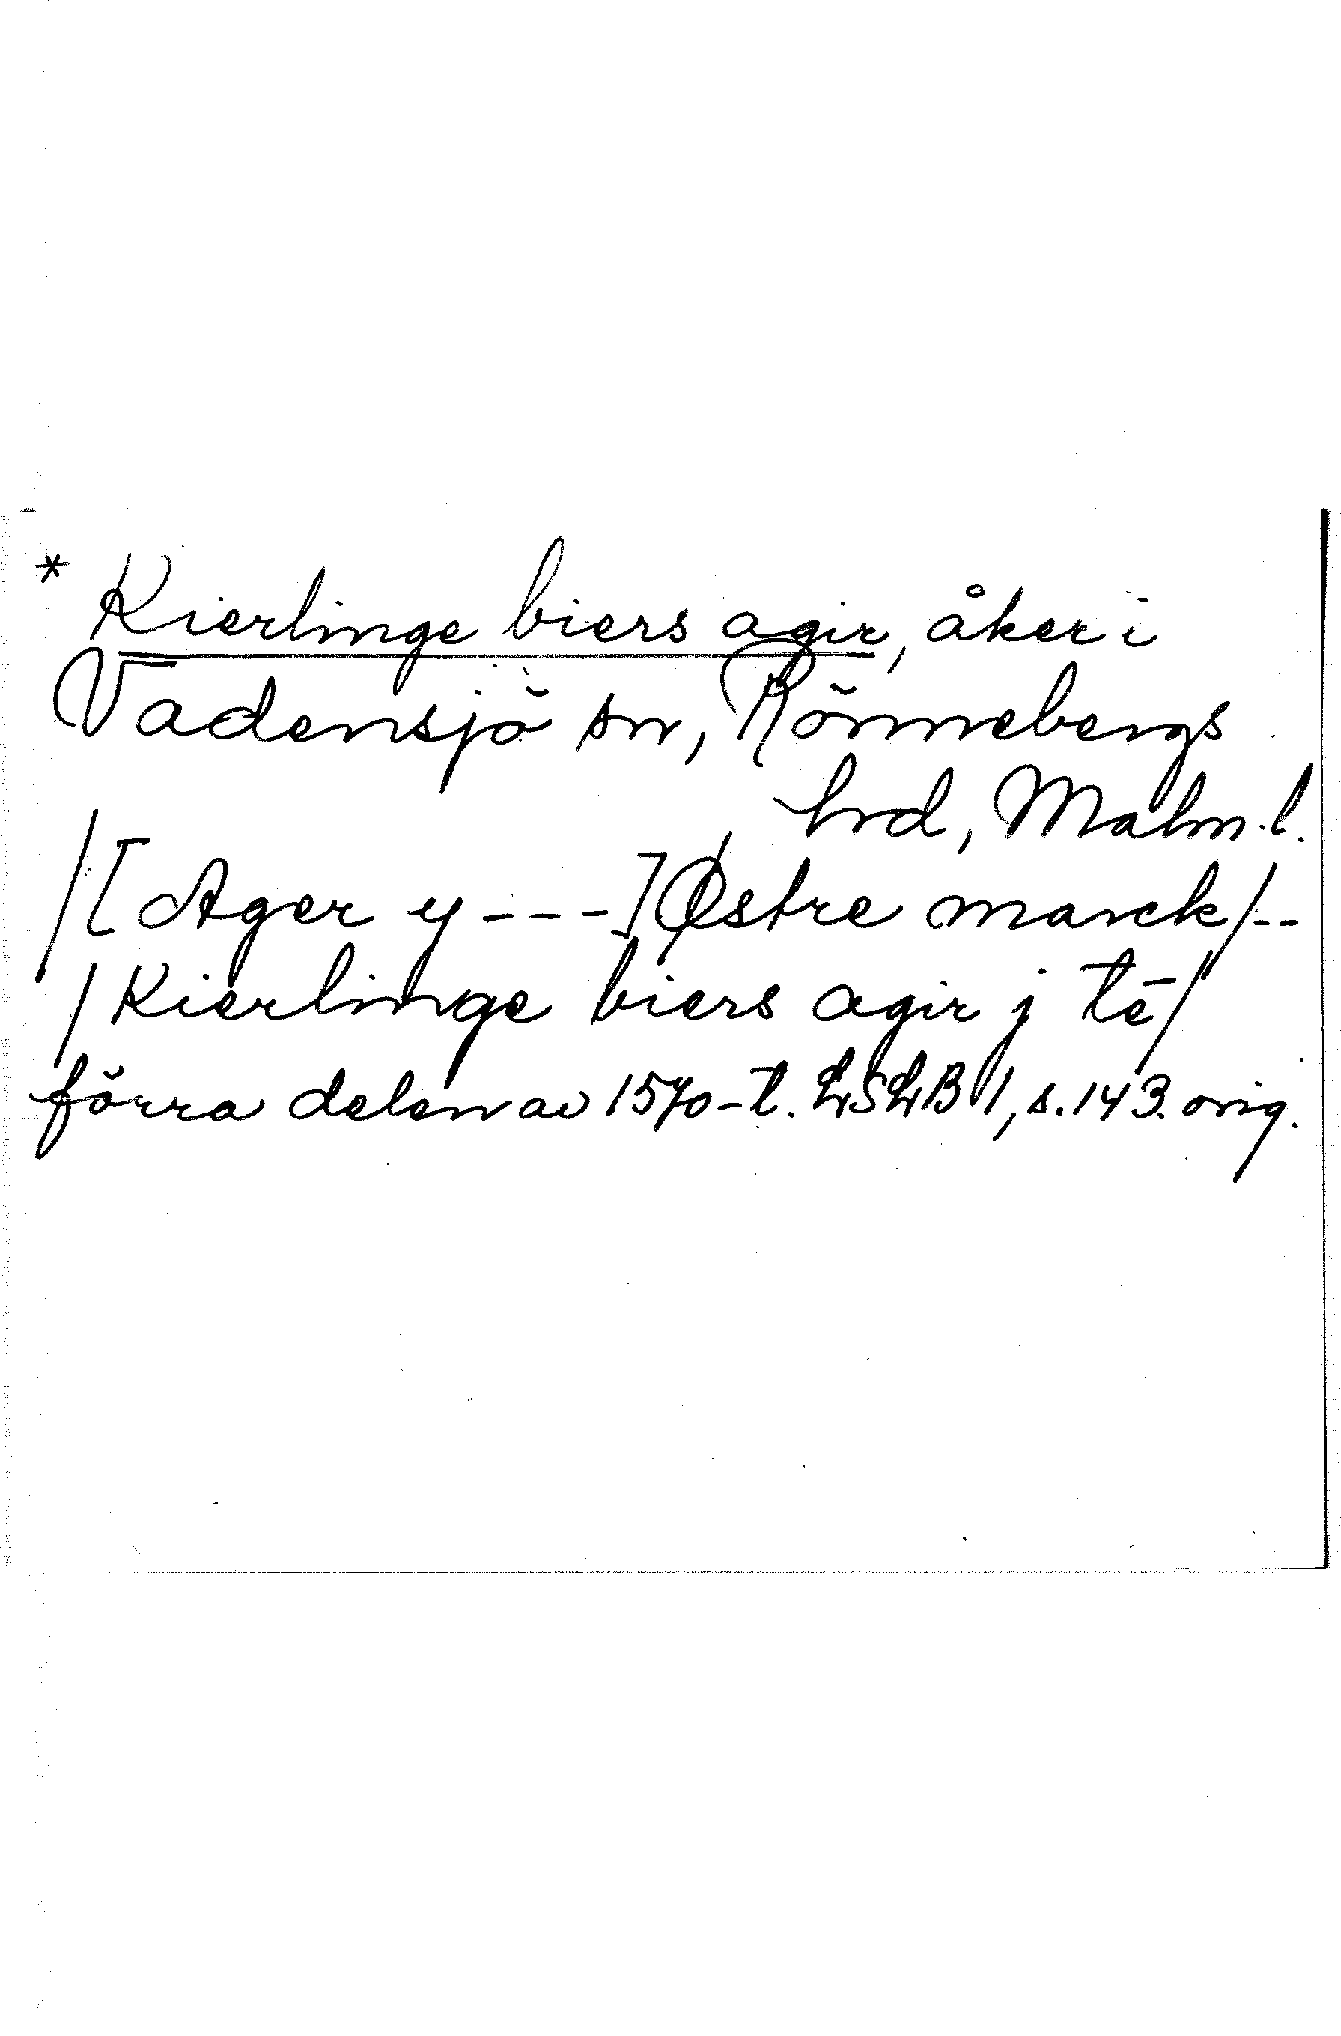 * Kierlinge biers agir, åker i
Vadensjö sn, Rönnebergs
hrd, Malm.l.
/[Ager y - - -] Østre marck/--
/Kierlinge biers agir j tē/
förra delen av 1570-t. LSLB 1, s. 143. orig.